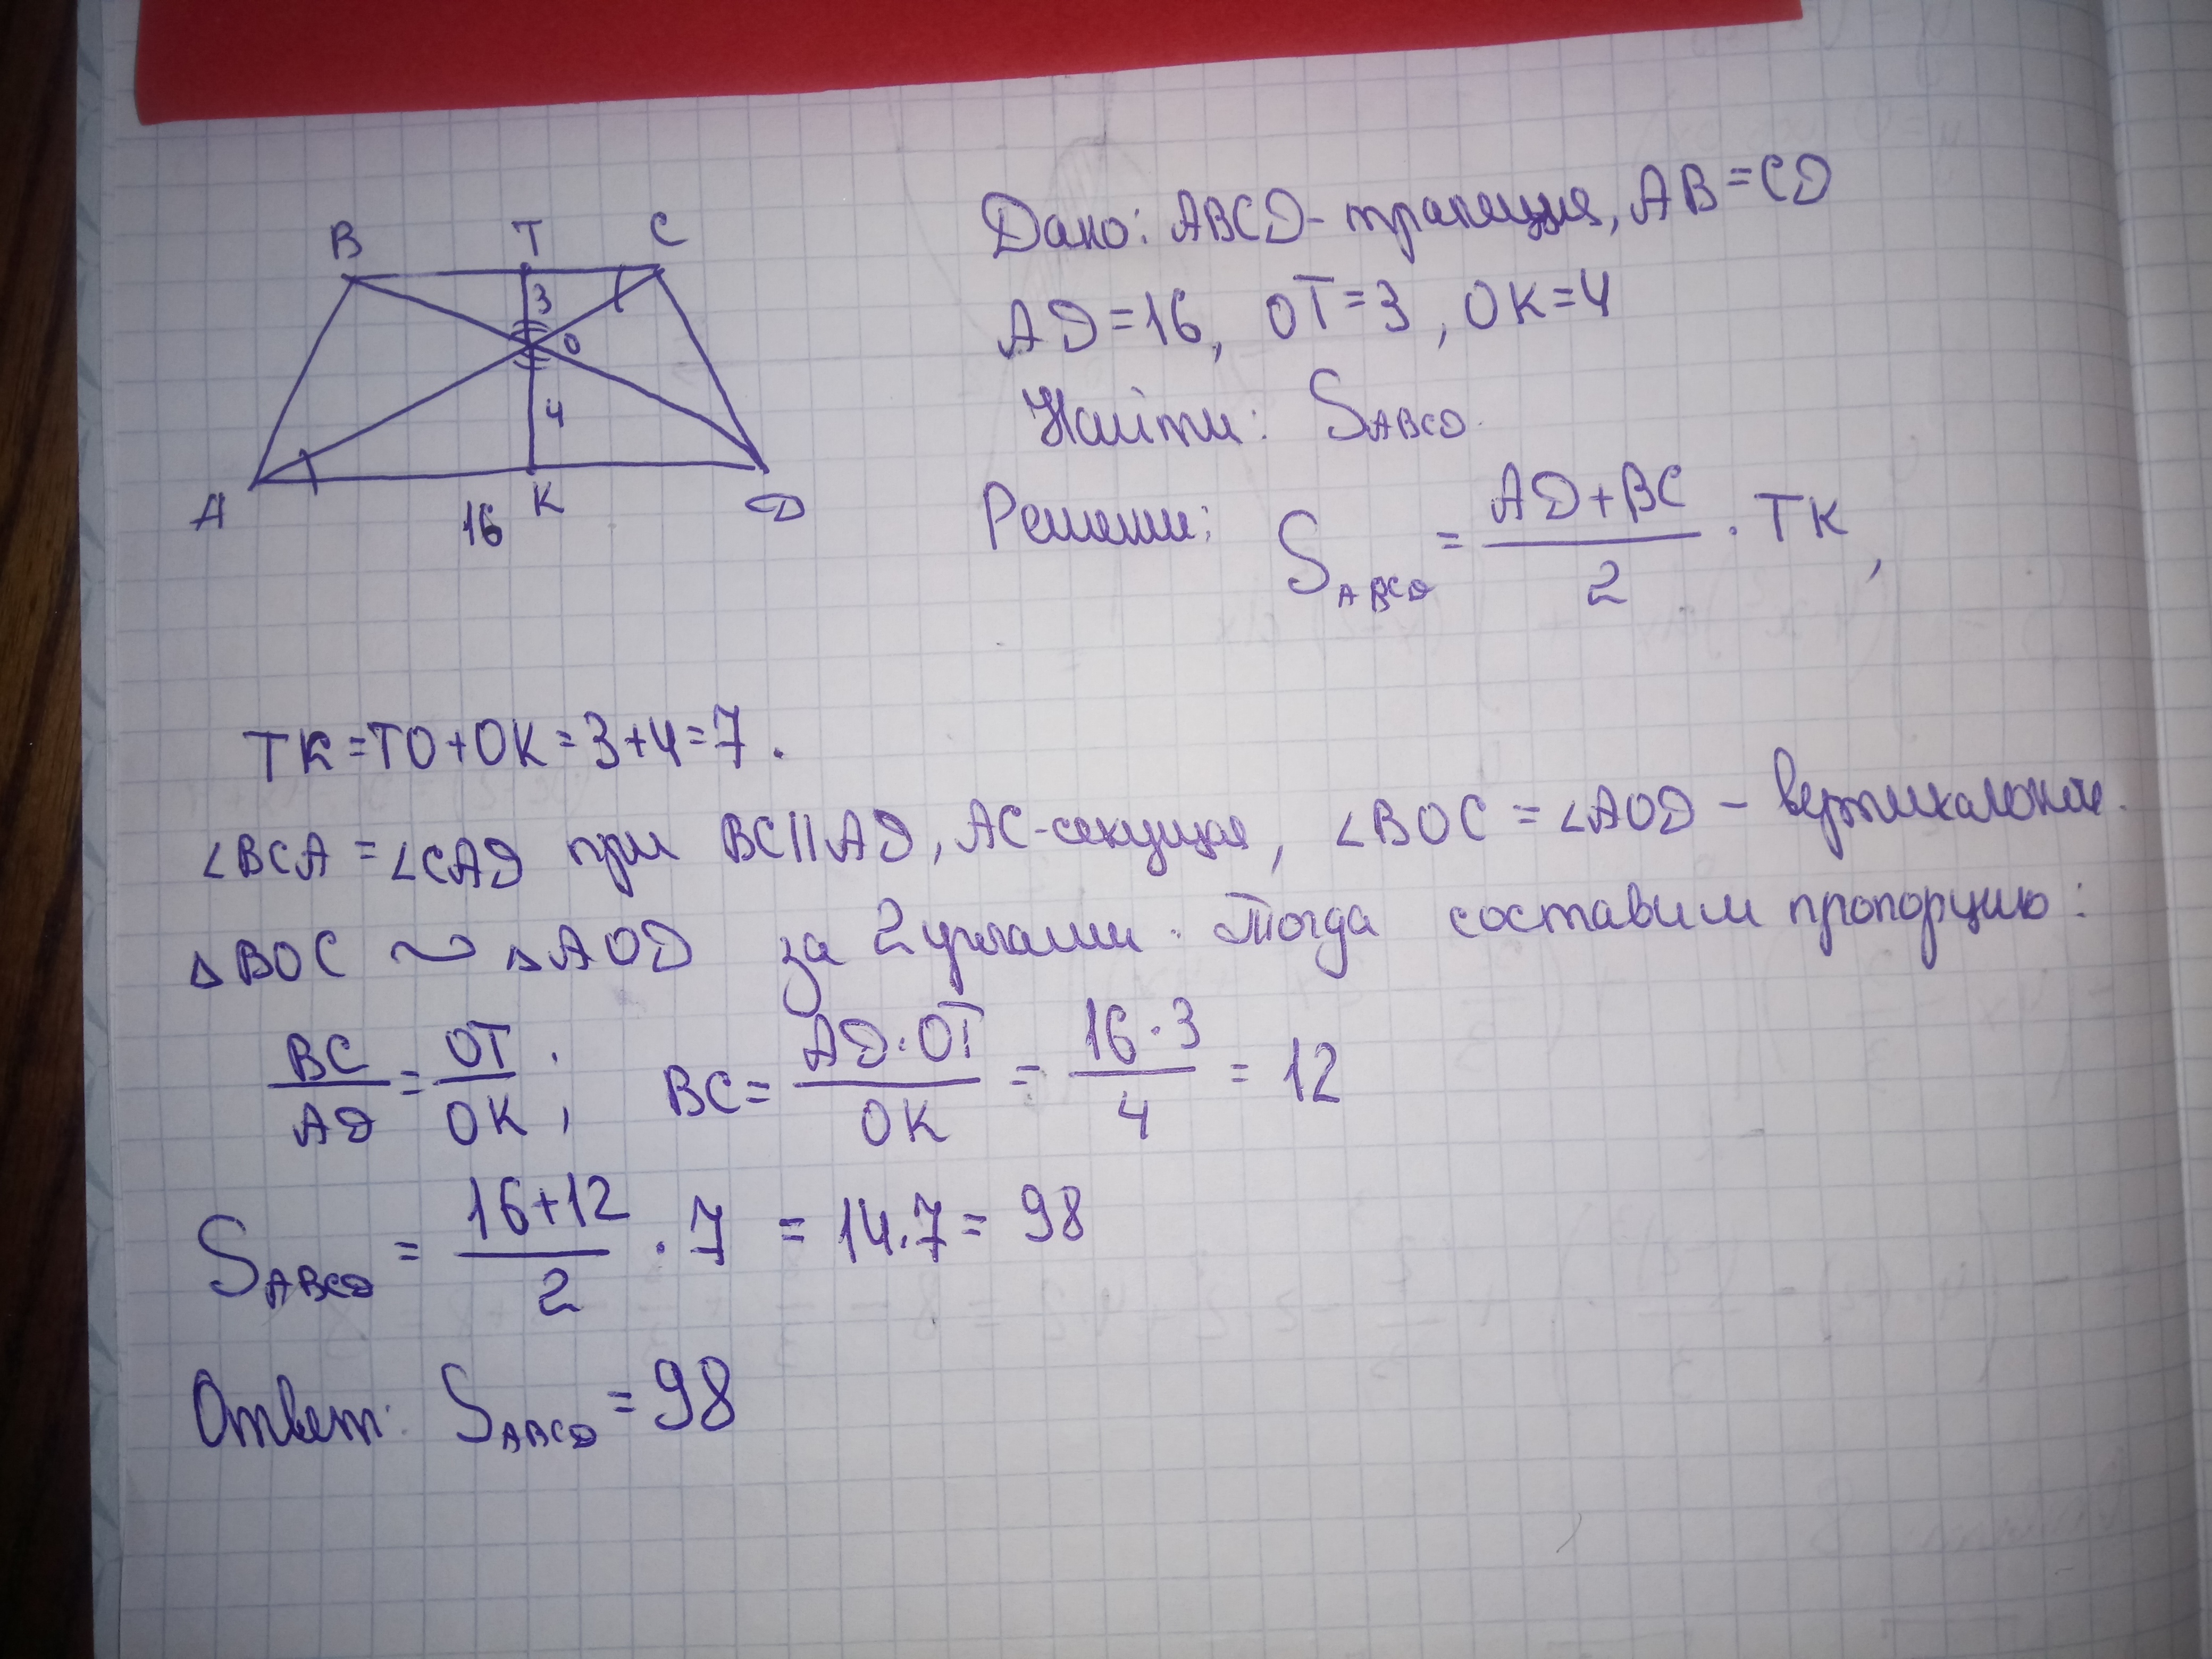 B T C
3
O
4
A 16 K D
Дано: ABCD - трапеция, AB = CD
AD = 16, OT = 3, OK = 4
Найти: S_ABCD.
Решение: S_ABCD = (AD + BC)/2 · TK,
TK = TO + OK = 3 + 4 = 7.
∠BCA = ∠CAD при BC || AD, AC - секущая, ∠BOC = ∠AOD - вертикальные.
△BOC ~ △AOD за 2 углами. Тогда составим пропорцию:
BC/AD = OT/OK; BC = AD · OT/OK = 16 · 3/4 = 12
S_ABCD = (16 + 12)/2 · 7 = 14 · 7 = 98
Ответ: S_ABCD = 98